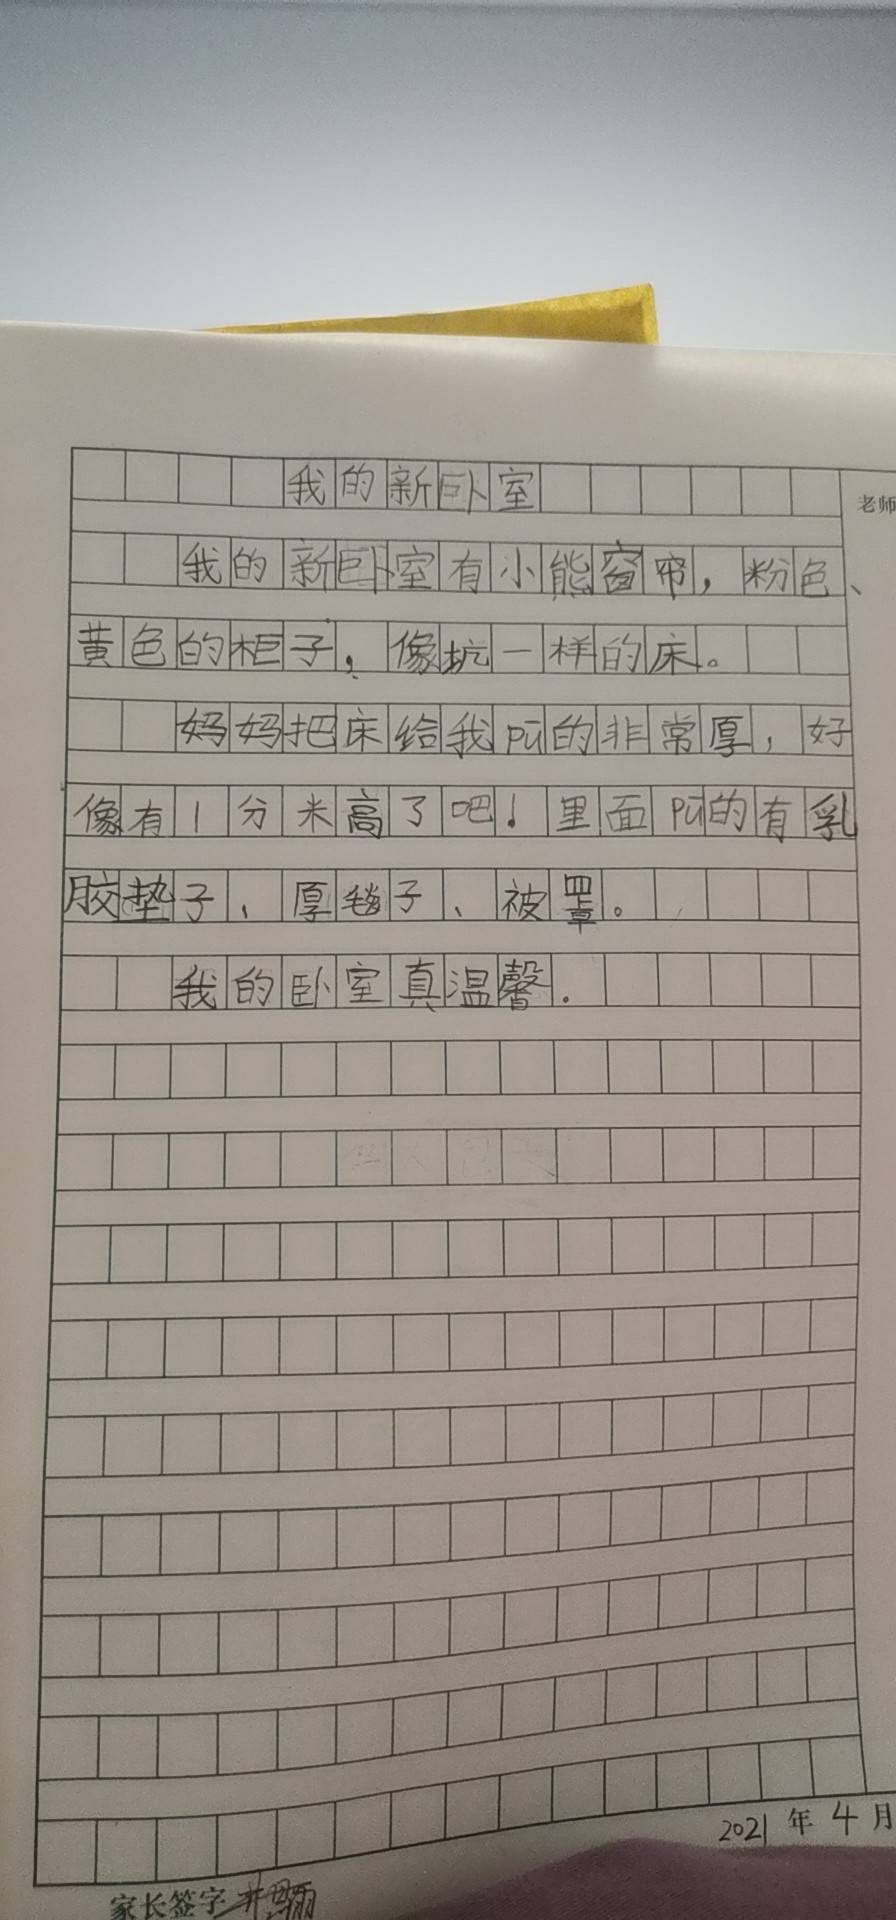 我的新卧室
老师
我的新卧室有小熊窗帘，粉色、
黄色的柜子，像坑一样的床。
妈妈把床给我pū的非常厚，好
像有1分米高了吧！里面pū的有乳
胶垫子、厚毯子、被罩。
我的卧室真温馨.
2021年4月
家长签字